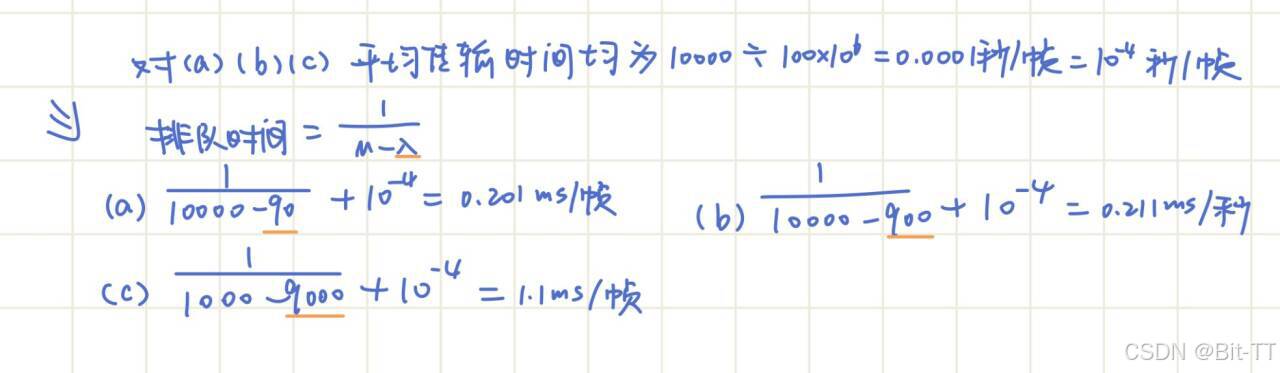 对(a)(b)(c) 平均传输时间均为 10000 ÷ 100×10⁶ = 0.0001秒/帧 = 10⁻⁴ 秒/帧
排队时间 = 1/(μ-λ)
(a) 1/(10000-90) + 10⁻⁴ = 0.201 ms/帧 (b) 1/(10000-900) + 10⁻⁴ = 0.211ms/秒
(c) 1/(1000-9000) + 10⁻⁴ = 1.1ms/帧
CSDN @Bit-TT